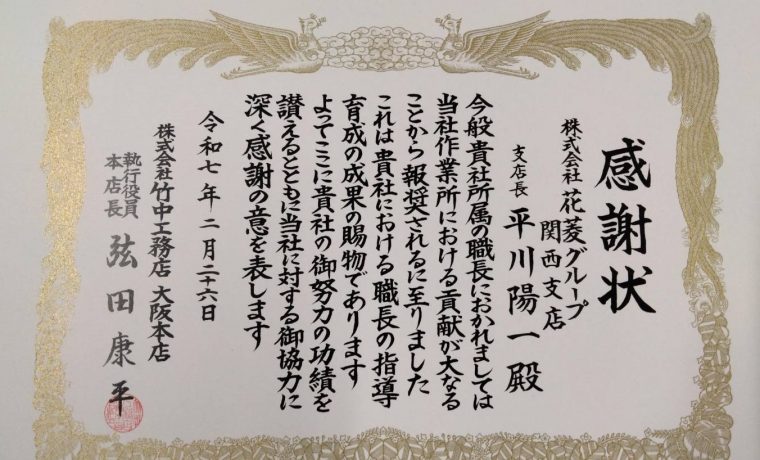 感謝状
株式会社 花菱グループ
関西支店
支店長 平川陽一殿
今般貴社所属の職長におかれましては
当社作業所における貢献が大なる
ことから報奨されるに至りました
これは貴社における職長の指導
育成の成果の賜物であります
よってここに貴社の御努力の功績を
讃えるとともに当社に対する御協力に
深く感謝の意を表します
令和七年二月二十六日
株式会社 竹中工務店 大阪本店
執行役員
本店長 弦田康平